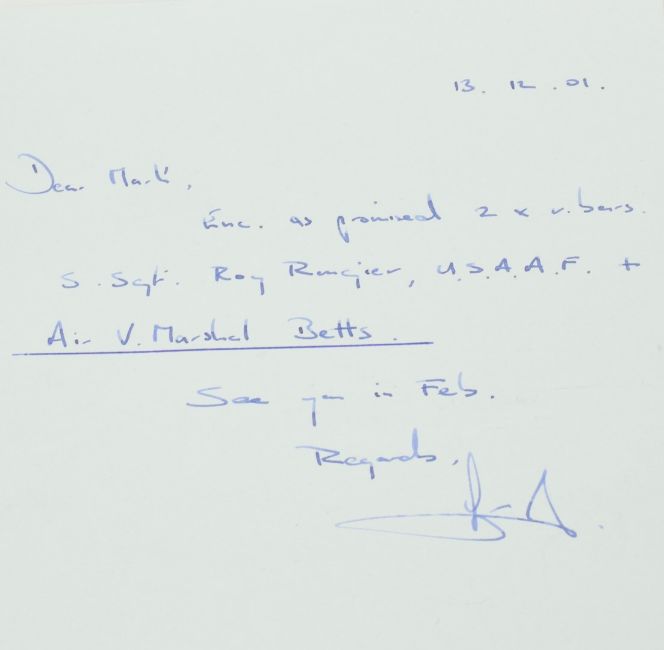 13. 12. 01.
Dear Mark,
Enc. as promised 2 x r. bars.
S. Sgt. Roy Rongier, U.S.A.A.F. +
Air V. Marshal Betts.
See you in Feb.
Regards,